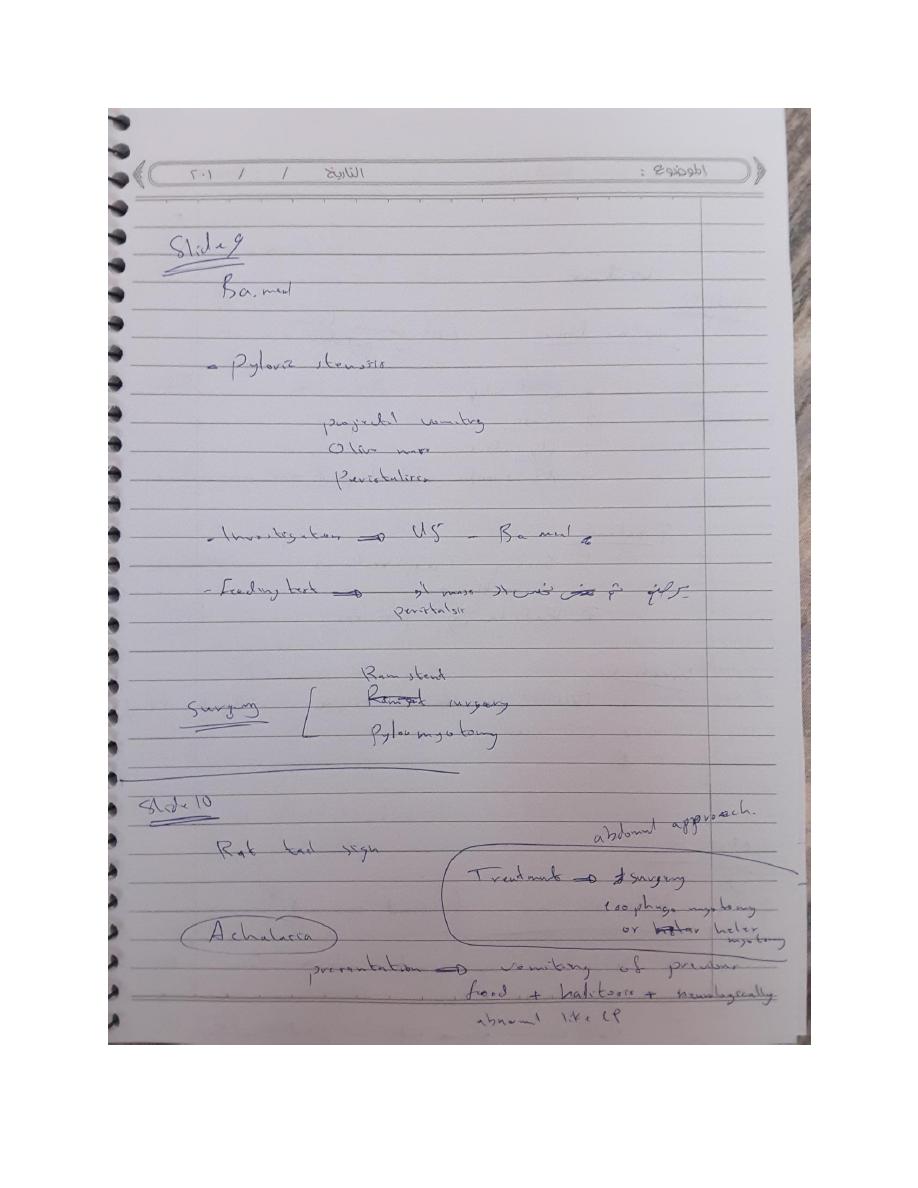 الموضوع : التاريخ / / ٢٠١
Slide 9
Ba. meal
- Pyloric stenosis
projectil vomiting
Olive mass
Peristalisis
- Investigation ⇒ US - Ba meal
- Feeding test ⇒ يرضع ثم نحس الـ mass أو
peristalsis
Ramstent
Surgery surgery
Pyloromyotomy
Slide 10
abdominal approach.
Rat tail sign
Treatment ⇒ surgery
esophagomyotomy
or heler
myotomy
Achalasia
presentation ⇒ vomiting of previous
food + halitosis + neurologically
abnormal like CP